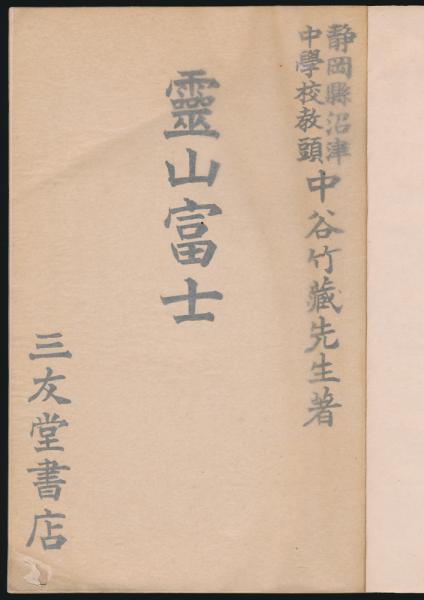 静岡縣沼津
中學校教頭
中谷竹藏先生著
靈山富士
三友堂書店